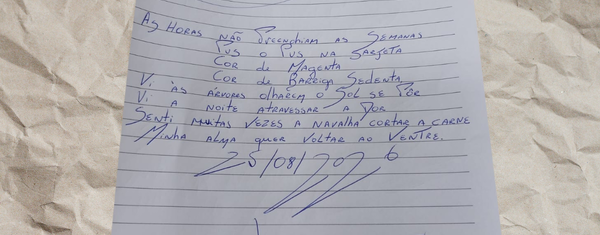 As Horas não Preenchiam as Semanas
Pus o Pus na Sarjeta
Cor de Magenta
Cor de Barriga Sedenta
Vi as árvores olharem o Sol se Pôr
Vi a noite atravessar a Dor
Senti muitas vezes a navalha cortar a carne
Minha alma quer voltar ao Ventre.
25/08/20 6